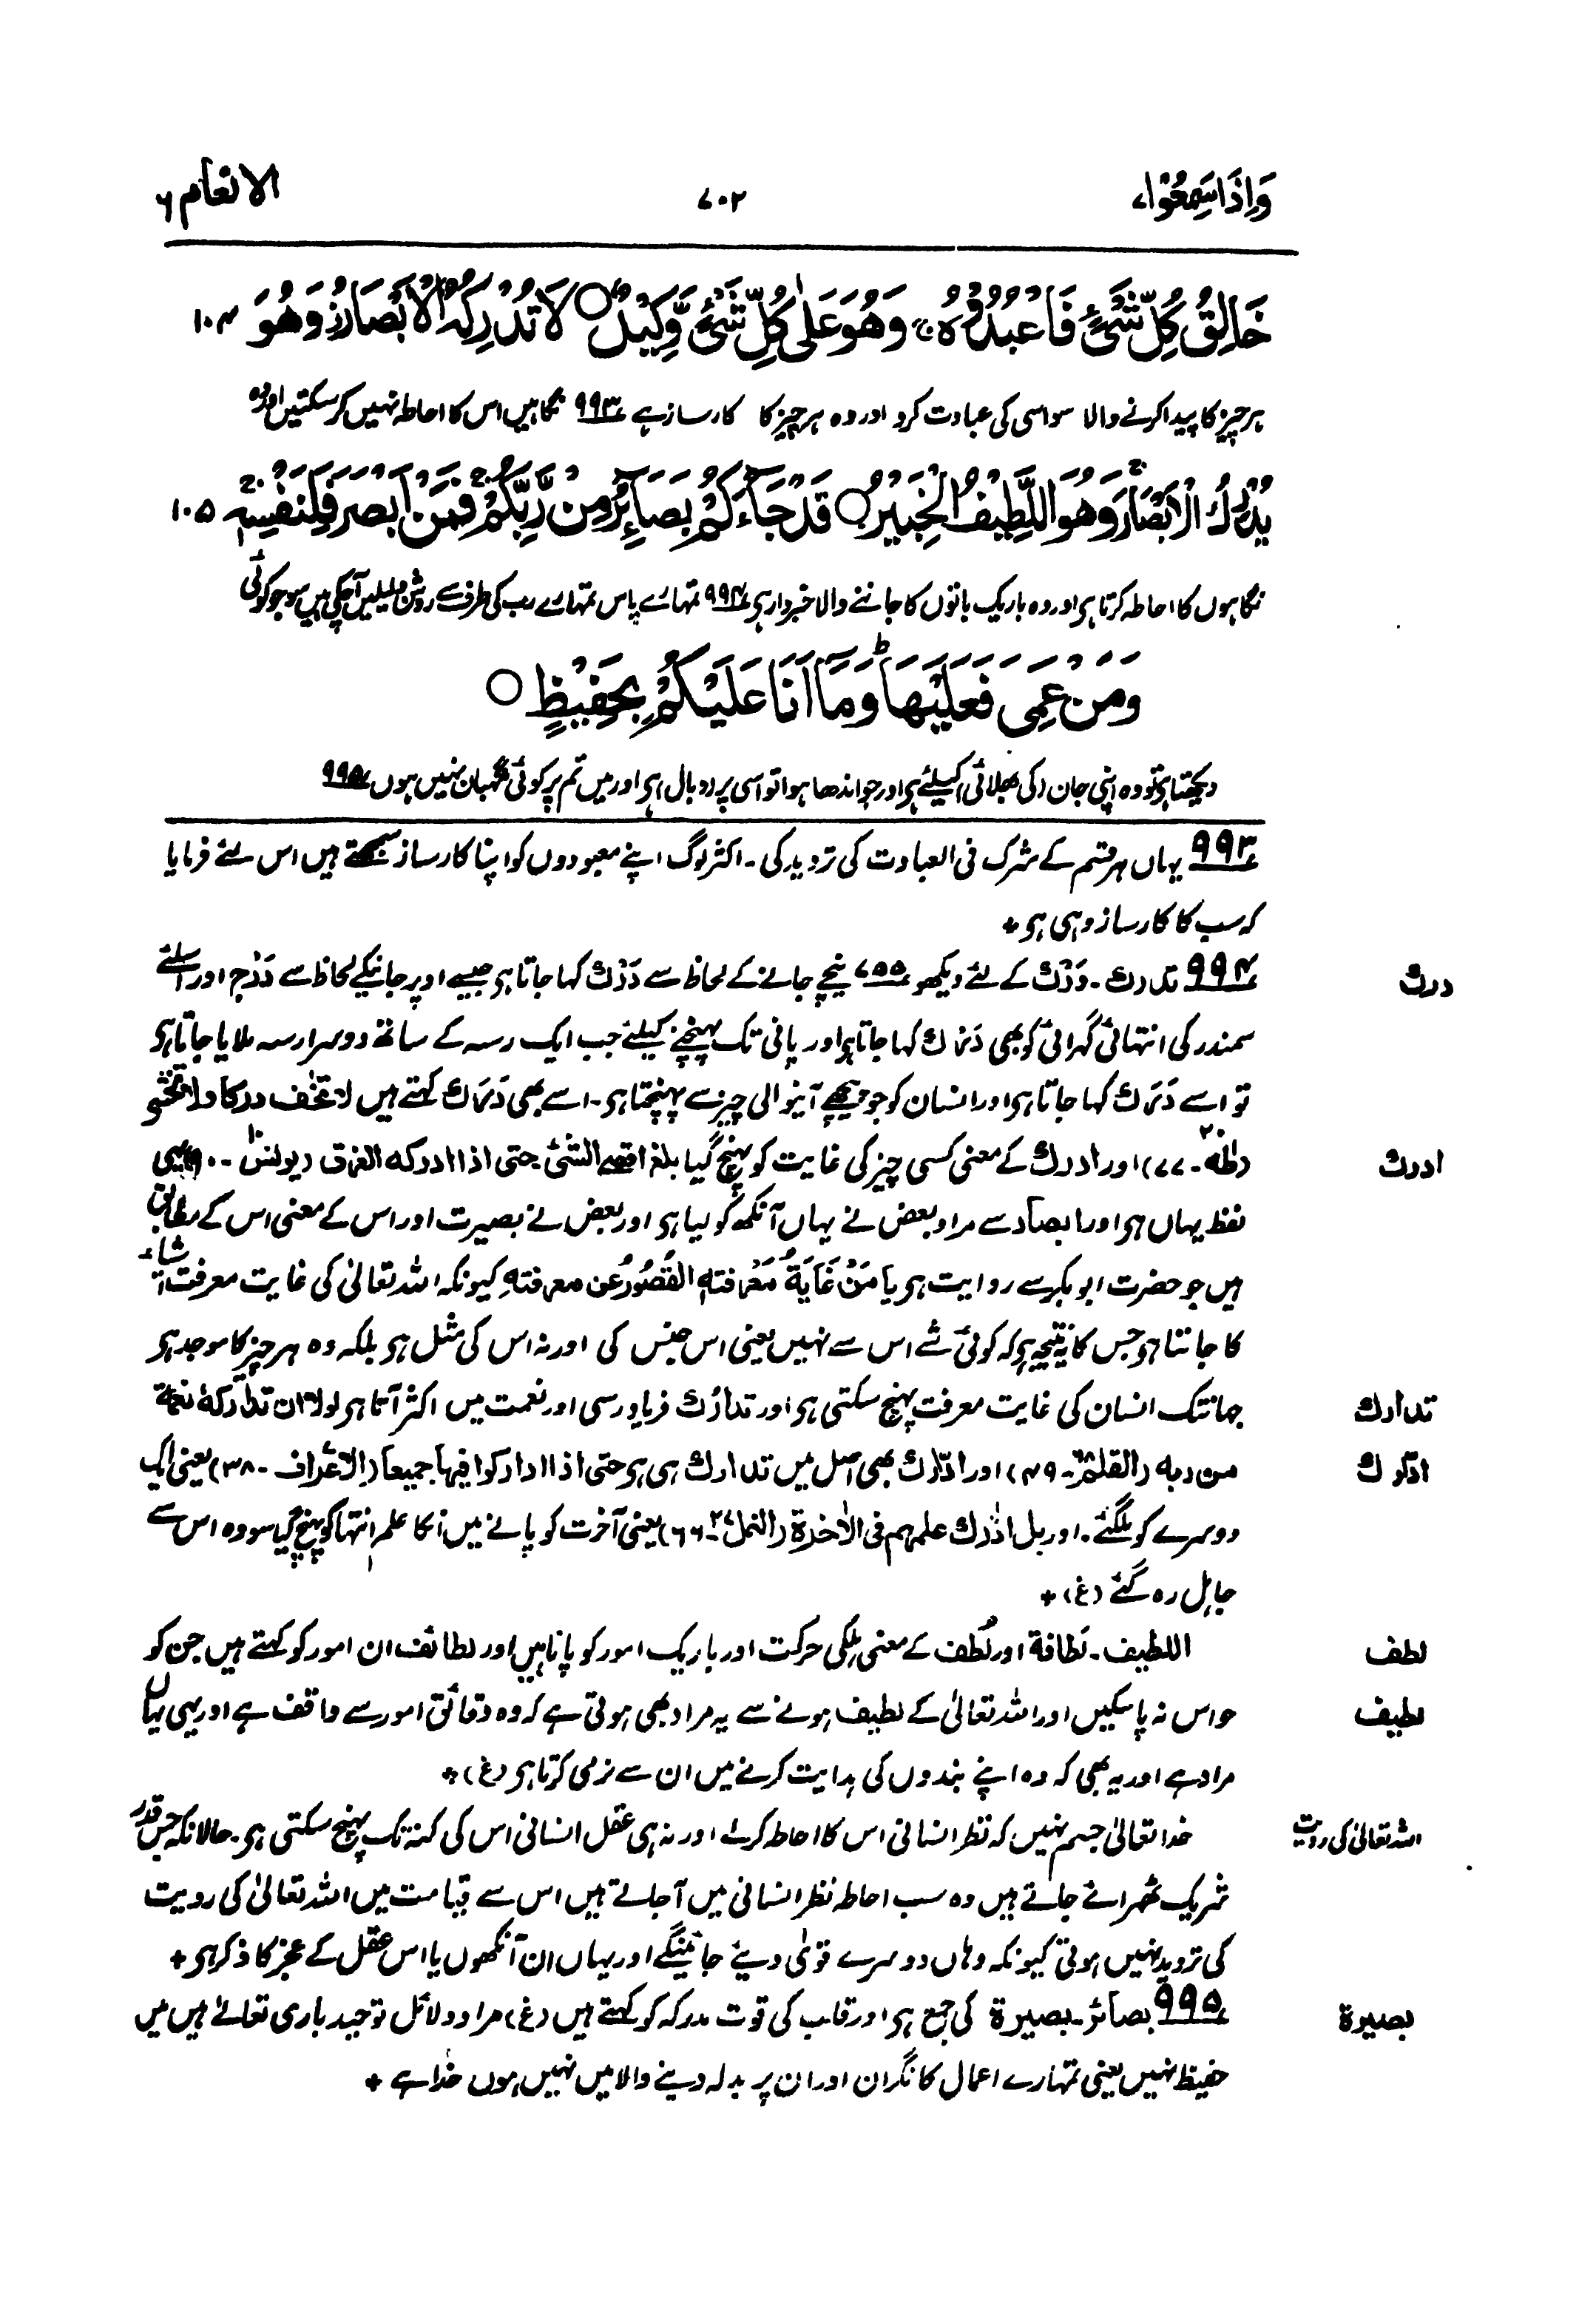 وَاِذَا سَمِعُوْا ۷
۷۰۲
الانعام ۶
خَالِقُ كُلِّ شَيْءٍ فَاعْبُدُوْهُ ۚ وَهُوَ عَلٰى كُلِّ شَيْءٍ وَّكِيْلٌ ○ لَا تُدْرِكُهُ الْاَبْصَارُ وَهُوَ ۱۰۴
ہر چیز کا پیدا کرنے والا سو اسی کی عبادت کرو اور وہ ہر چیز کا کارساز ہے ۹۹۳ نگاہیں اس کا احاطہ نہیں کر سکتیں اور وہ
يُدْرِكُ الْاَبْصَارَ ۚ وَهُوَ اللَّطِيْفُ الْخَبِيْرُ ○ قَدْ جَآءَكُمْ بَصَآئِرُ مِنْ رَّبِّكُمْ ۚ فَمَنْ اَبْصَرَ فَلِنَفْسِهٖ ۚ ۱۰۵
نگاہوں کا احاطہ کرتا ہی اور وہ باریک باتوں کا جاننے والا خبردار ہی ۹۹۴ تمہارے پاس تمہارے رب کی طرف سے روشن دلیلیں آچکی ہیں سو جو کوئی
وَمَنْ عَمِيَ فَعَلَيْهَا ؕ وَمَآ اَنَا عَلَيْكُمْ بِحَفِيْظٍ ○
دیکھتا ہی تو وہ اپنی جان (کی بھلائی) کیلئے ہی اور جو اندھا ہوا تو اسی پر (وبال) ہی اور میں تم پر کوئی نگہبان نہیں ہوں ۹۹۵
۹۹۳ یہاں ہر قسم کے شرک فی العبادت کی تردید کی۔ اکثر لوگ اپنے معبودوں کو اپنا کارساز سمجھتے ہیں اس لئے فرمایا
کہ سب کا کارساز وہی ہی +
درك
۹۹۴ تدرك۔ دَرْك کے لئے دیکھو ۷۵۵ نیچے جانے کے لحاظ سے دَرْك کہا جاتا ہی جیسے اوپر جانیکے لحاظ سے دَرَج اور اسلئے
سمندر کی انتہائی گہرائی کو بھی دَرَك کہا جاتا ہی اور پانی تک پہنچنے کیلئے جب ایک رسہ کے ساتھ دوسرا رسہ ملایا جاتا ہی
تو اسے دَرَك کہا جاتا ہی اور انسان کو جو پیچھے آنیوالی چیز سے پہنچتا ہی۔ اسے بھی دَرَك کہتے ہیں لا تخٰف دركا ولا تخشٰى
ادرك
(طٰهٰ ۲۰۔ ۷۷) اور ادرك کے معنی کسی چیز کی غایت کو پہنچ گیا بلغ اقصى الشئ حتى اذا ادركه الغرق (یونس ۱۰۔ ۹۰) یہی
لفظ یہاں ہی اور ابصار سے مراد بعض نے یہاں آنکھ کو لیا ہی اور بعض نے بصیرت اور اس کے معنی اس کے مطابق
ہیں جو حضرت ابو بکر سے روایت ہی یَا مَنْ غَايَةُ مَعْرفتهِ القُصُورُ عن معرفتهِ کیونکہ اللہ تعالیٰ کی غایت معرفت اشیاء
کا جاننا ہی جس کا نتیجہ یہ ہی کہ کوئی شے اس سے نہیں یعنی اس جنس کی اور نہ اس کی مثل ہی بلکہ وہ ہر چیز کا موجد ہی
تدارك
جہانتک انسان کی غایت معرفت پہنچ سکتی ہی اور تدارُك فریاد رسی اور نعمت میں اکثر آتا ہی لولا ان تدارکهٗ نعمة
ادّارك
من ربه (القلم ۶۸۔ ۴۹) اور ادّارك بھی اصل میں تدارك ہی ہی حتى اذا ادارکوا فیہا جمیعا (الاعراف۔ ۳۸) یعنی ایک
دوسرے کو مل گئے۔ اور بل ادّرك علمہم فی الاٰخرة (النمل ۲۷۔ ۶۶) یعنی آخرت کو پانے میں انکا علم انتہا کو پہنچ گیا سو وہ اس سے
جاہل رہ گئے (غ) +
لطف
اللطیف۔ لَطافة اور لُطف کے معنی ہلکی حرکت اور باریک امور کو پانا ہیں اور لطائف ان امور کو کہتے ہیں جن کو
لطیف
حواس نہ پاسکیں اور اللہ تعالیٰ کے لطیف ہونے سے یہ مراد بھی ہوتی ہے کہ وہ دقائق امور سے واقف ہے اور یہی یہاں
مراد ہے اور یہ بھی کہ وہ اپنے بندوں کی ہدایت کرنے میں ان سے نرمی کرتا ہی (غ) +
اللہ تعالیٰ کی رویت
خدا تعالیٰ جسم نہیں کہ نظر انسانی اس کا احاطہ کرلے اور نہ ہی عقل انسانی اس کی کنہ تک پہنچ سکتی ہی۔ حالانکہ جس قدر
شریک ٹھہرائے جاتے ہیں وہ سب احاطہ نظر انسانی میں آجاتے ہیں اس سے قیامت میں اللہ تعالیٰ کی رویت
کی تردید نہیں ہوتی کیونکہ وہاں دوسرے قویٰ دیئے جائینگے اور یہاں ان آنکھوں یا اس عقل کے عجز کا ذکر ہی +
بصیرة
۹۹۵ بصائر۔ بصیرة کی جمع ہی اور قلب کی قوت مدرکہ کو کہتے ہیں (غ) مراد دلائل توحید باری تعالےٰ ہیں میں
حفیظ نہیں یعنی تمہارے اعمال کا نگران اور ان پر بدلہ دینے والا میں نہیں ہوں خدا ہے +